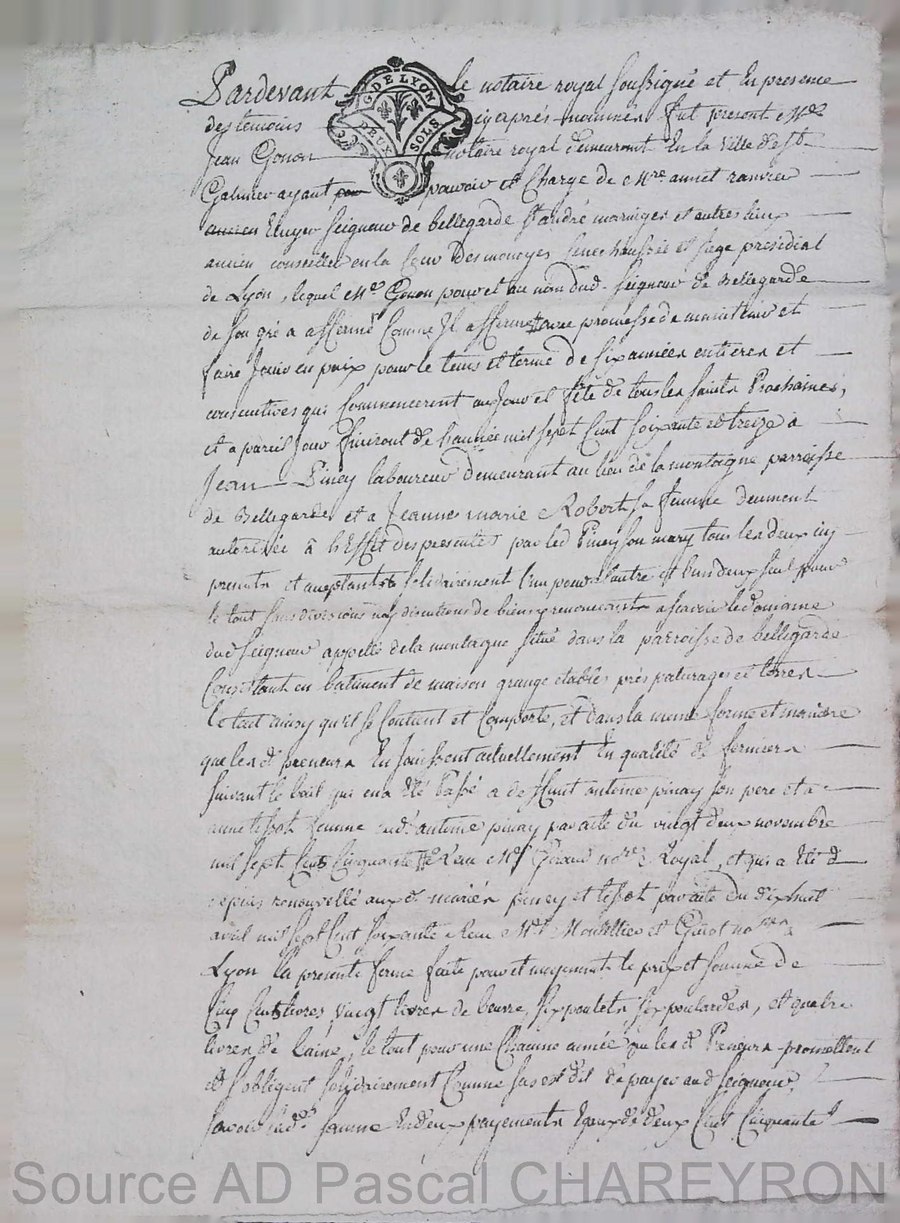 Pardevant le notaire royal soussigné et En presence
des temoins cy aprés nommés fut present Me
Jean Gonon notaire royal demeurant En la Ville de St
Galmier ayant pouvoir et Charge de Mre annet ranvier
Ecuyer seigneur de bellegarde St andré maringes et autres lieux
ancien conseiller en la Cour Des monoyes senechaussée et siege presidial
de Lyon, lequel Me Gonon pour et au nom dud. seigneur de Bellegarde
de son gré a affermé Comme Il afferme avec promesse de maintenir et
faire Jouir en paix pour le tems et terme de six années entieres et
consecutives qui Commenceront au Jour et fête de tous les saints Prochaines,
et a pareil Jour finiront de l'année mil sept Cent soixante et treize a
Jean Piney laboureur demeurant au lieu de la montagne parroisse
de Bellegarde et a Jeanne marie Robert sa femme deument
autorisée à l'Effet des presentes par led Piney son mary tous les deux icy
presents et acceptants solidairement l'un pour l'autre et l'un deux seul pour
le tout sans division ny discution de biens y renonceants a scavoir le domaine
dud seigneur appellé de la montagne situé dans la parroisse de bellegarde
Consistant en batiment de maison grange etables prés paturages et terres
le tout ainsy qu'il se Contient et Comporte, et dans la meme forme et maniere
que les d preneurs En Jouissent actuellement En qualité de fermiers
suivant le bail qui en a Eté Passé a deffunt antoine pinay son pere et a
anne tissot femme dud. antoine pinay par acte du vingt deux novembre
mil sept Cent Cinquante Receu Me Giraud nore Royal, et qui a Eté d
epuis renouvellé aux d. mariés piney et tissot par acte du dixhuit
avril mil sept Cent soixante Receu Mrs et Guiot nores a
Lyon la presente ferme faite pour et moyennant le prix et somme de
Cinq Cents livres, vingt livres de beurre, six poulets six poulardes, et quatre
livres de laine, le tout pour une Chacune année que les d Preneurs promettent
et s'obligent solidairement Comme sus est dit de payer aud seigneur,
savoir lad. somme En deux payements Egaux de deux Cent Cinquante l
G. DE LYON
DEUX SOLS
Source AD Pascal CHAREYRON